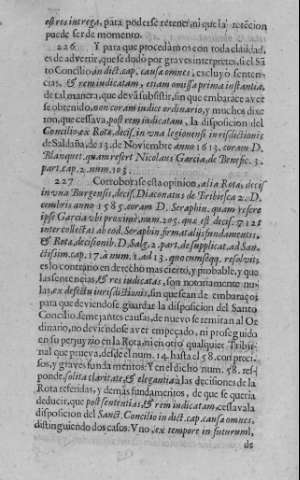 est res integra, para poderse retener, ni que la retẽcion
puede ser de momento.
226 Y para que procedamos con toda claridad,
es de advertir, que se dudò por graves interpretes, si el Sã
to Concilio, in dict. cap. causæ omnes, excluyò senten-
cias, & rem indicatam, etiam omissa prima instantia,
de tal manera, que deva subsistir, sin que embarace aver
se obtenido, non coram iudice ordinario, y muchos dixe
ron, que cessava, post rem iudicatam, la disposicion del
Concilio, ex Rota, decis. in vna legionensi iurisdictionis
de Saldaña, de 13. de Noviembre anno 1613. coram D.
Blanquet, quam refert Nicolaus Garcia, de Benefic. 3.
part. cap. 2. num. 103.
227 Corroborase esta opinion, alia Rotæ, decis
in vna Burgensi, decis. Diaconatus de Bribiesca 2. De
cembris anno 1585. coram D. Seraphin. quam refere
ipse Garcia vbi proximè, num. 205. quæ est decis. 712
inter collectas ab eod. Seraphin. firmat alijs fundamentis,
& Rota, decisionib. D. Salg. 2. part. de supplicat. ad San-
ctissim. cap. 17. à num. 1. ad 13. quo cumseqq. resolvit
es lo contrario en derecho mas cierto, y probable, y que
las sentencias, & res iudicatas, son notoriamente nu-
las, ex defectu iurisdictionis, sin que sean de embarazo
para que deviendose guardar la disposicion del Santo
Concilio semejantes causas, de nuevo se remitan al Or
dinario, no deviendose aver empeçado, ni proseguida
en su perjuyzio en la Rota, ni en otro qualquier Tribu-
nal que prueva, desde el num. 14. hasta el 58. con preci-
sos, y graves fundamentos: Y en el dicho num. 58. res-
ponde, solita claritate, & elegantia, à las decisiones de la
Rota referidas, y demàs fundamentos, de que se queria
deducir, que post sententias, & rem indicatam, cessava la
disposicion del Sanct. Concilio in dict. cap. causæ omnes,
distinguiendo dos casos: Vno, ex tempore in futurum,
de